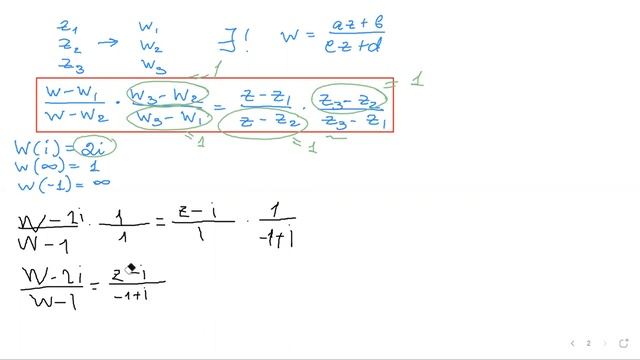 z₁ w₁
z₂ → w₂ ∃! w = (az+b)/(cz+d)
z₃ w₃
(w-w₁)/(w-w₂) · (w₃-w₂)/(w₃-w₁) = (z-z₁)/(z-z₂) · (z₃-z₂)/(z₃-z₁)
=1 =1 =1 =1
w(i) = 2i
w(∞) = 1
w(-1) = ∞
(w-2i)/(w-1) · 1/1 = (z-i)/1 · 1/(-1+i)
(w-2i)/(w-1) = (z-i)/(-1+i)
2